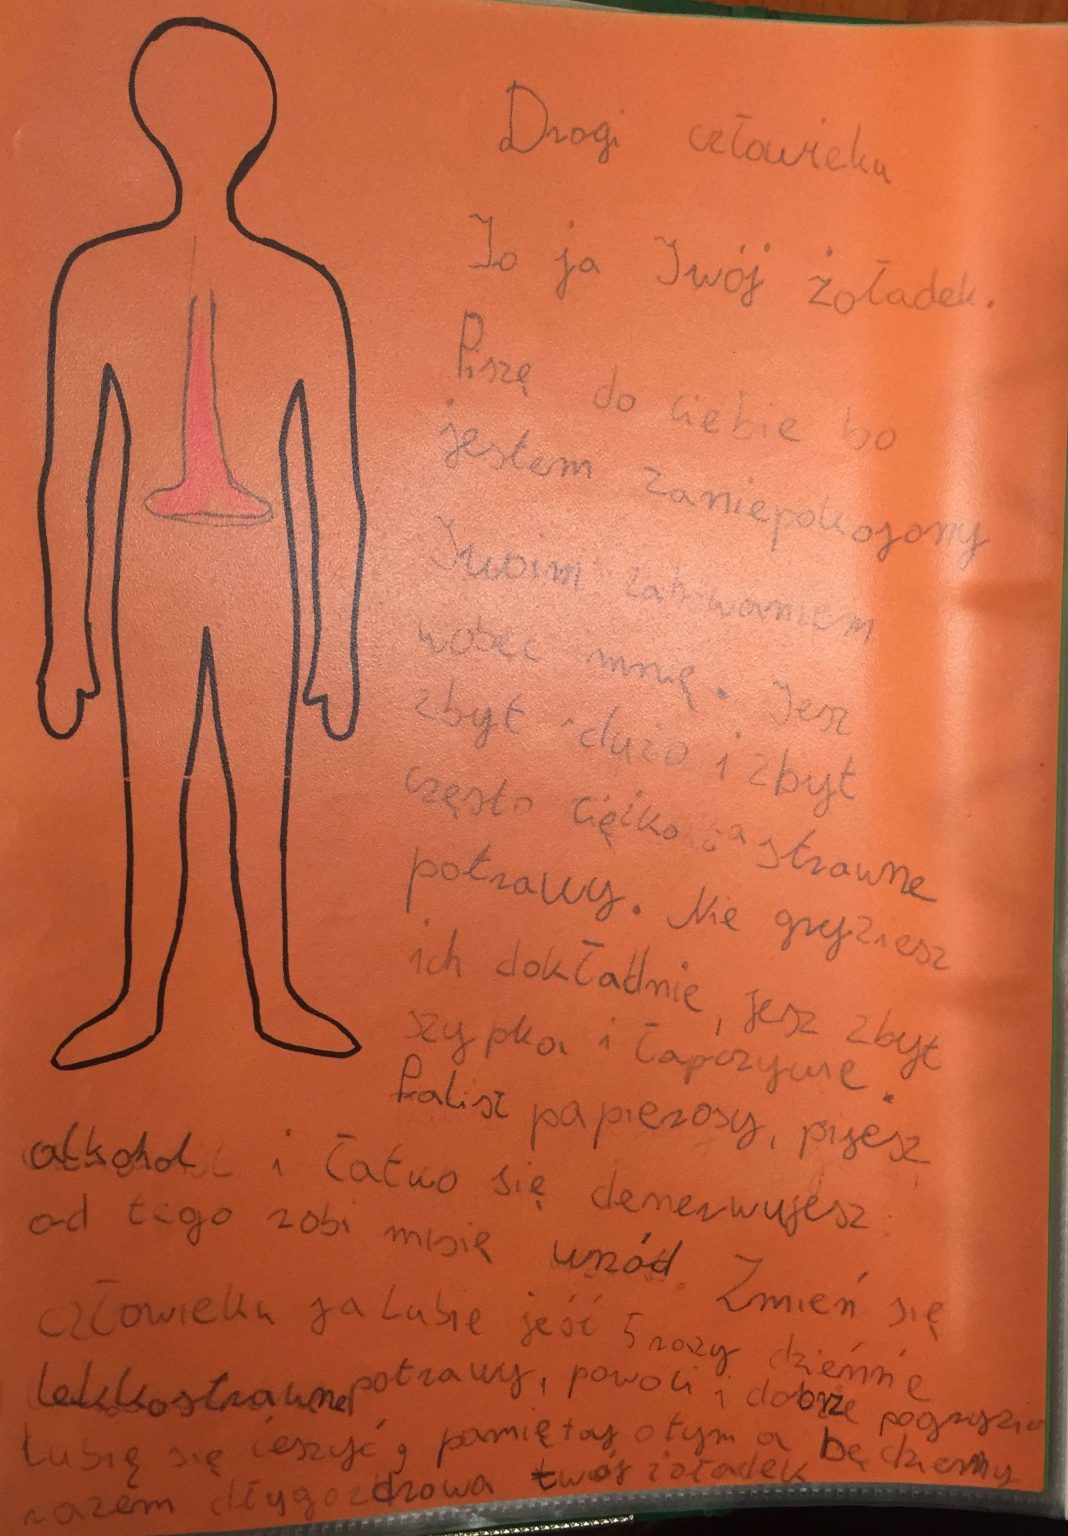 Drogi człowieku
To ja Twój żoładek.
Piszę do ciebie bo
jestem zaniepokojony
Twoim zahowaniem
wobec mnię. Jesz
zbyt dużo i zbyt
często ciężko strawne
potrawy. Nie gryziesz
ich dokładnie, jesz zbyt
szypko i łapczywie.
Palisz papierosy, pijesz
alkohol i łatwo się denerwujesz
od tego robi misię wrzód. Zmień się
człowieku ja lubie jeść 5 razy dzieńnie
lekkostrawne potrawy, powoli i dobrze
lubię się cieszyć, pamiętaj otym a będziemy
razem długozdrowa twój żoładek